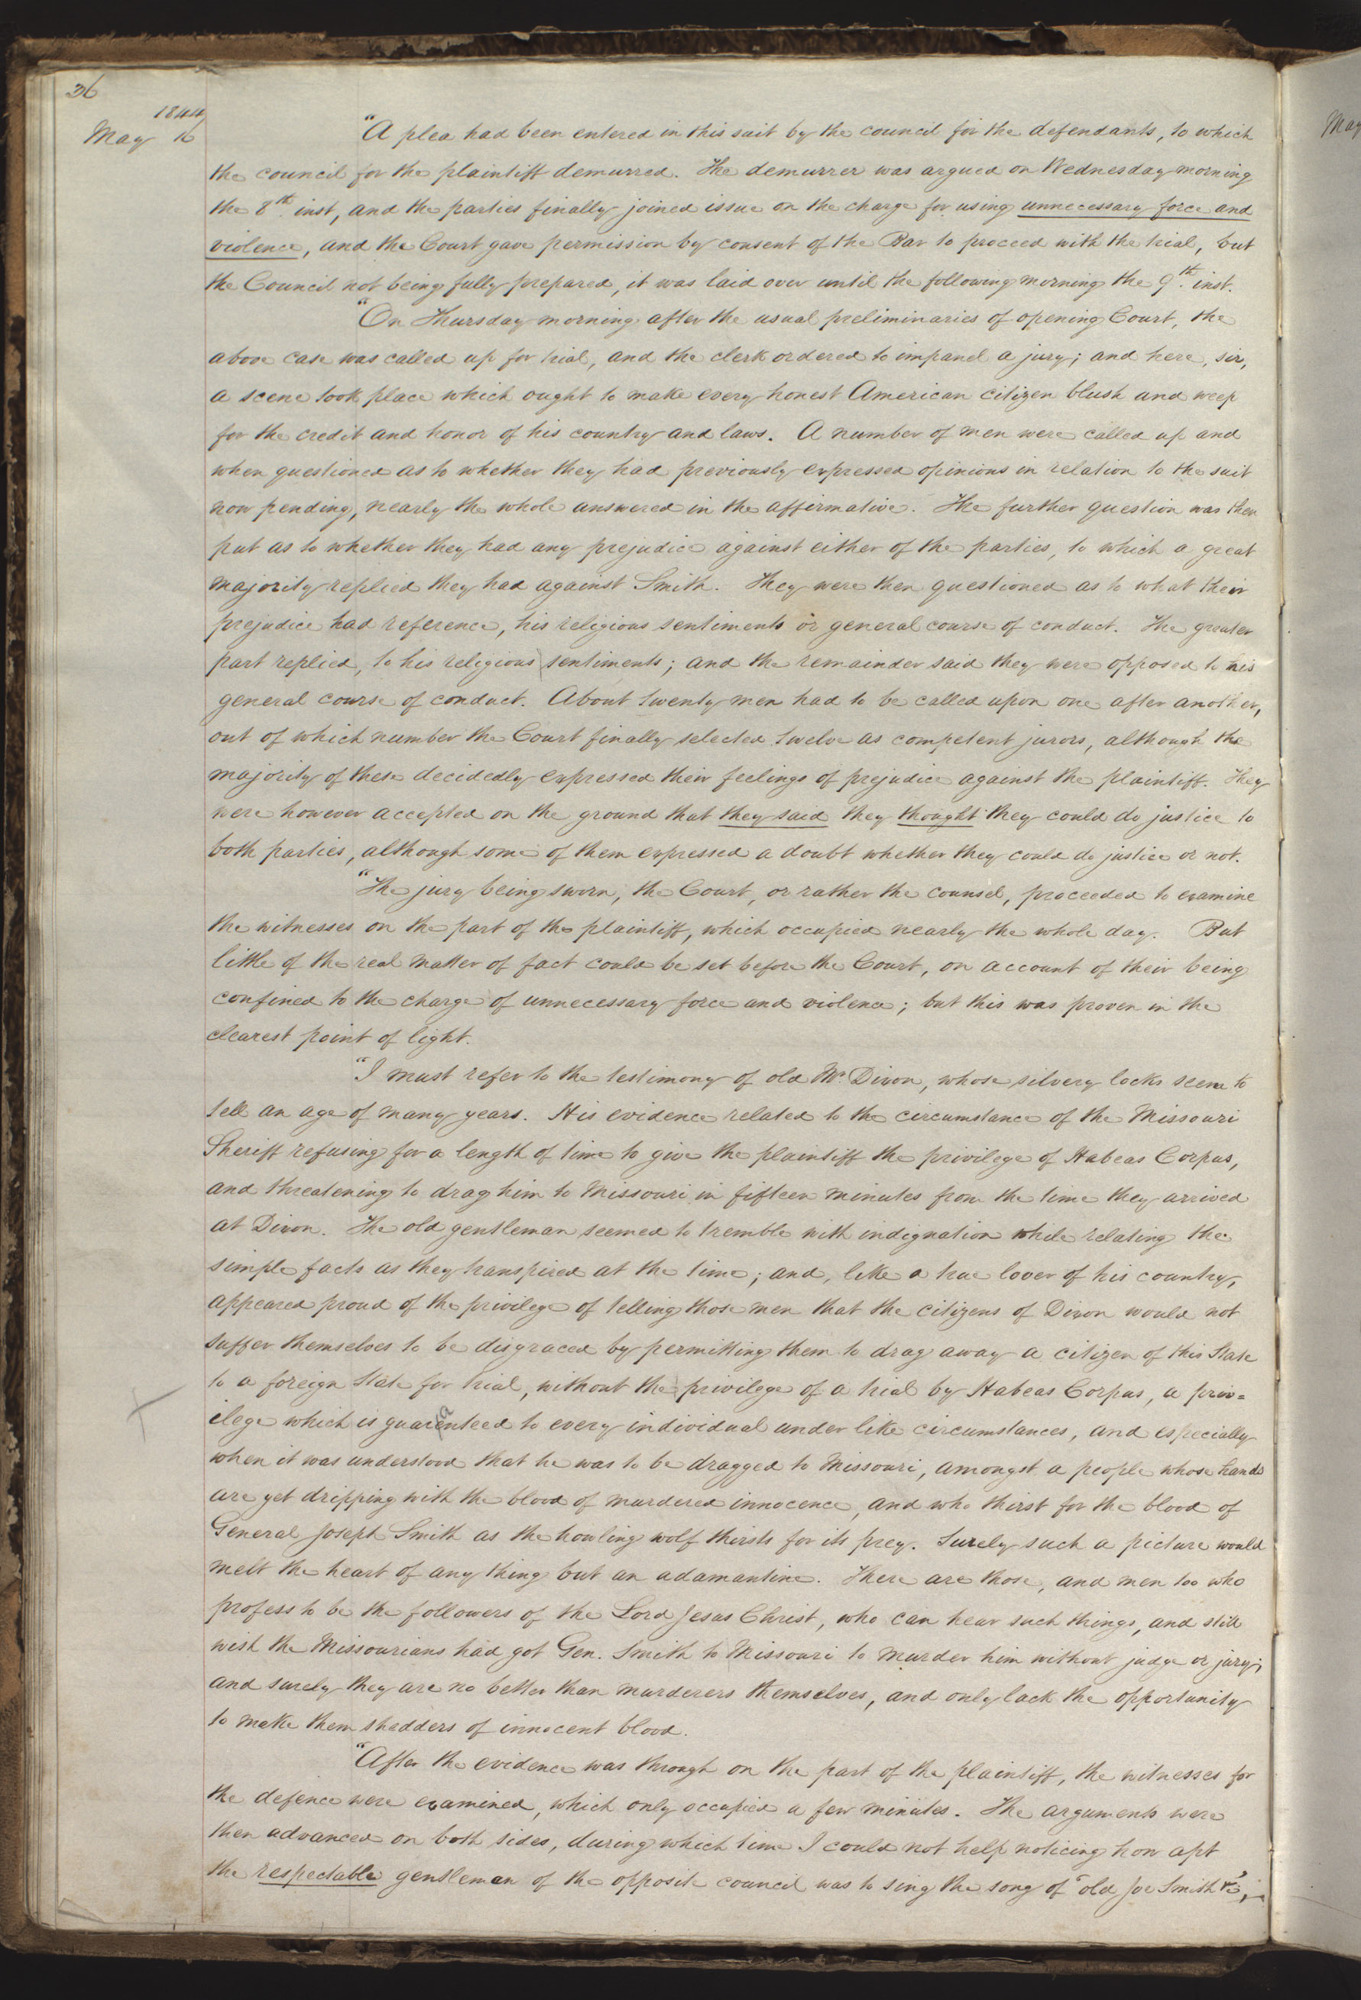 36
1844
May 16
"A plea had been entered in this suit by the council for the defendants, to which
the council for the plaintiff demurred. The demurrer was argued on Wednesday morning
the 8th. inst, and the parties finally joined issue on the charge for using unnecessary force and
violence, and the Court gave permission by consent of the Bar to proceed with the trial, but
the Council not being fully prepared, it was laid over until the following morning the 9th. inst.
"On Thursday morning after the usual preliminaries of opening Court, the
above case was called up for trial, and the clerk ordered to impanel a jury; and here, sir,
a scene took place which ought to make every honest American citizen blush and weep
for the credit and honor of his country and laws. A number of men were called up and
when questioned as to whether they had previously expressed opinions in relation to the suit
now pending, nearly the whole answered in the affirmative. The further question was then
put as to whether they had any prejudice against either of the parties, to which a great
majority replied they had against Smith. They were then questioned as to what their
prejudice had reference, his religious sentiments or general course of conduct. The greater
part replied, to his religious sentiments; and the remainder said they were opposed to his
general course of conduct. About twenty men had to be called upon one after another,
out of which number the Court finally selected twelve as competent jurors, although the
majority of these decidedly expressed their feelings of prejudice against the plaintiff. They
were however accepted on the ground that they said they thought they could do justice to
both parties, although some of them expressed a doubt whether they could do justice or not.
"The jury being sworn, the Court, or rather the counsel, proceeded to examine
the witnesses on the part of the plaintiff, which occupied nearly the whole day. But
little of the real matter of fact could be set before the Court, on account of their being
confined to the charge of unnecessary force and violence; but this was proven in the
clearest point of light.
"I must refer to the testimony of old Mr. Dixon, whose silvery locks seem to
tell an age of many years. His evidence related to the circumstance of the Missouri
Sheriff refusing for a length of time to give the plaintiff the privilege of Habeas Corpus,
and threatening to drag him to Missouri in fifteen minutes from the time they arrived
at Dixon. The old gentleman seemed to tremble with indignation while relating the
simple facts as they transpired at the time; and, like a true lover of his country,
appeared proud of the privilege of telling those men that the citizens of Dixon would not
suffer themselves to be disgraced by permitting them to drag away a citizen of this State
to a foreign State for trial, without the privilege of a trial by Habeas Corpus, a priv=
ilege which is guaranteed to every individual under like circumstances, and especially
when it was understood that he was to be dragged to Missouri, amongst a people whose hands
are yet dripping with the blood of murdered innocence, and who thirst for the blood of
General Joseph Smith as the howling wolf thirsts for its prey. Surely such a picture would
melt the heart of any thing but an adamantine. There are those, and men too who
profess to be the followers of the Lord Jesus Christ, who can hear such things, and still
wish the Missourians had got Gen. Smith to Missouri to murder him without judge or jury;
and surely they are no better than murderers themselves, and only lack the opportunity
to make them shedders of innocent blood.
"After the evidence was through on the part of the plaintiff, the witnesses for
the defence were examined, which only occupied a few minutes. The arguments were
then advanced on both sides, during which time I could not help noticing how apt
the respectable gentleman of the opposite council was to sing the song of "old Joe Smith",
May